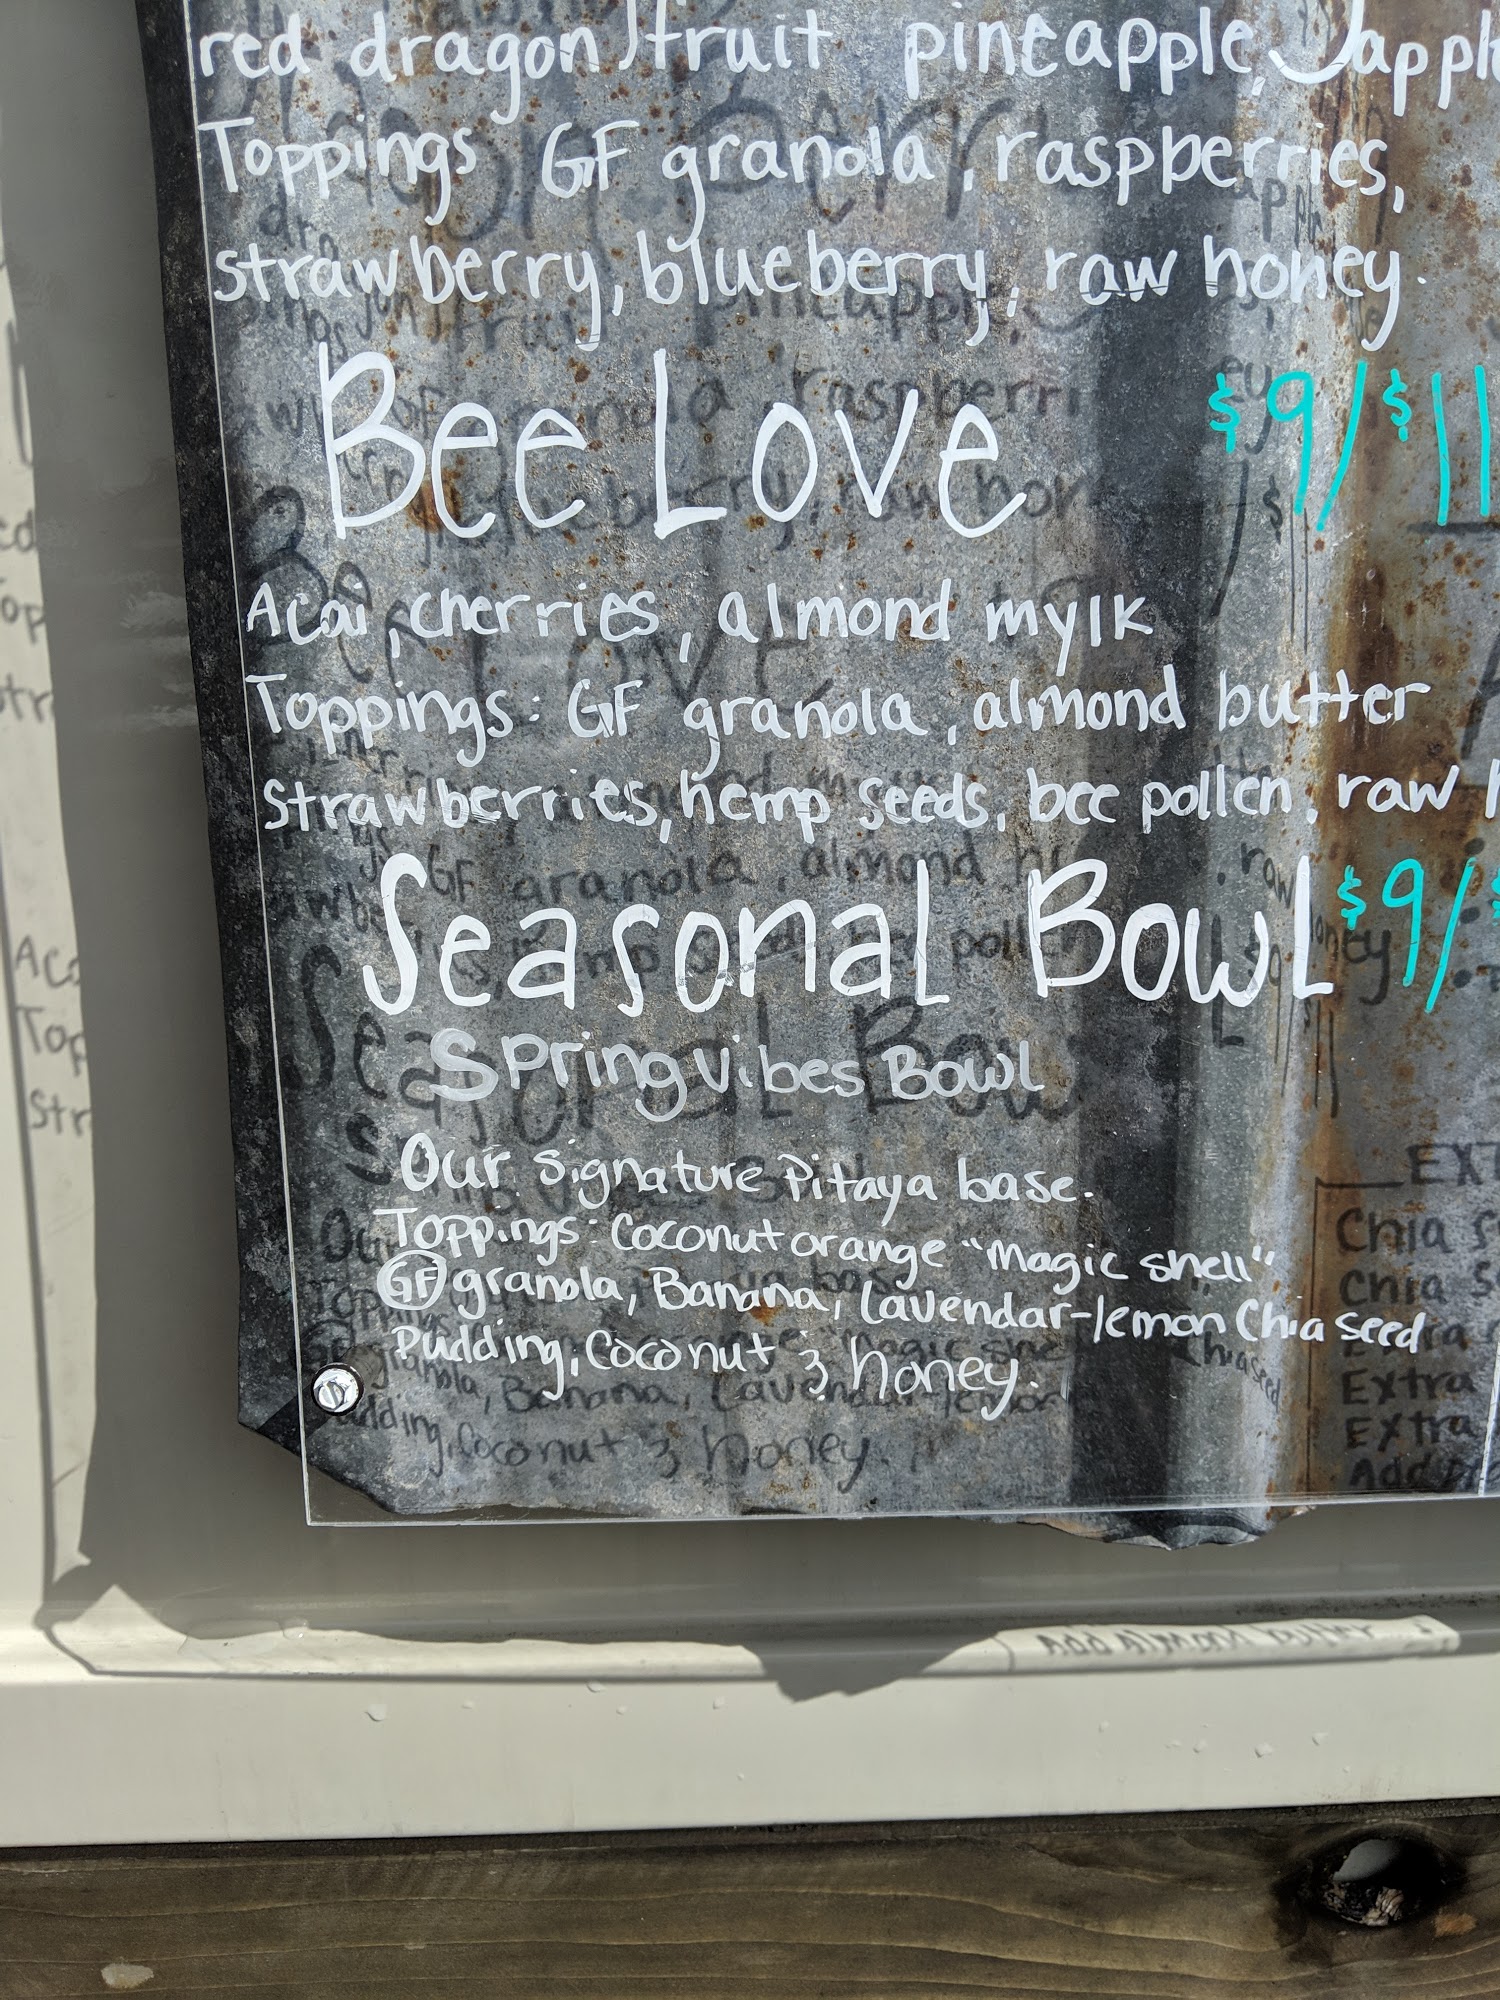 red dragon fruit pineapple,
Toppings GF granola, raspberries,
strawberry, blueberry, raw honey.
Bee Love $9/$11
Acai, cherries, almond mylk
Toppings: GF granola, almond butter
strawberries, hemp seeds, bee pollen, raw
Seasonal Bowl $9/$
Spring vibes Bowl
Our signature Pitaya base.
Toppings: Coconut orange "magic shell"
GF granola, Banana, lavendar-lemon Chia seed
Pudding, Coconut & honey.
EXT
Chia S
Chia S
Extra
Extra
Extra
Add
Add Almond butter